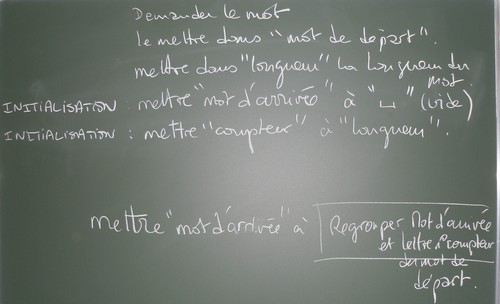 Demander le mot
le mettre dans "mot de départ".
mettre dans "longueur" la longueur du mot
INITIALISATION : mettre "mot d'arrivée" à "⌴" (vide)
INITIALISATION : mettre "compteur" à "longueur".
mettre "mot d'arrivée" à
Regrouper Mot d'arrivée
et lettre n° compteur
du mot de
départ.